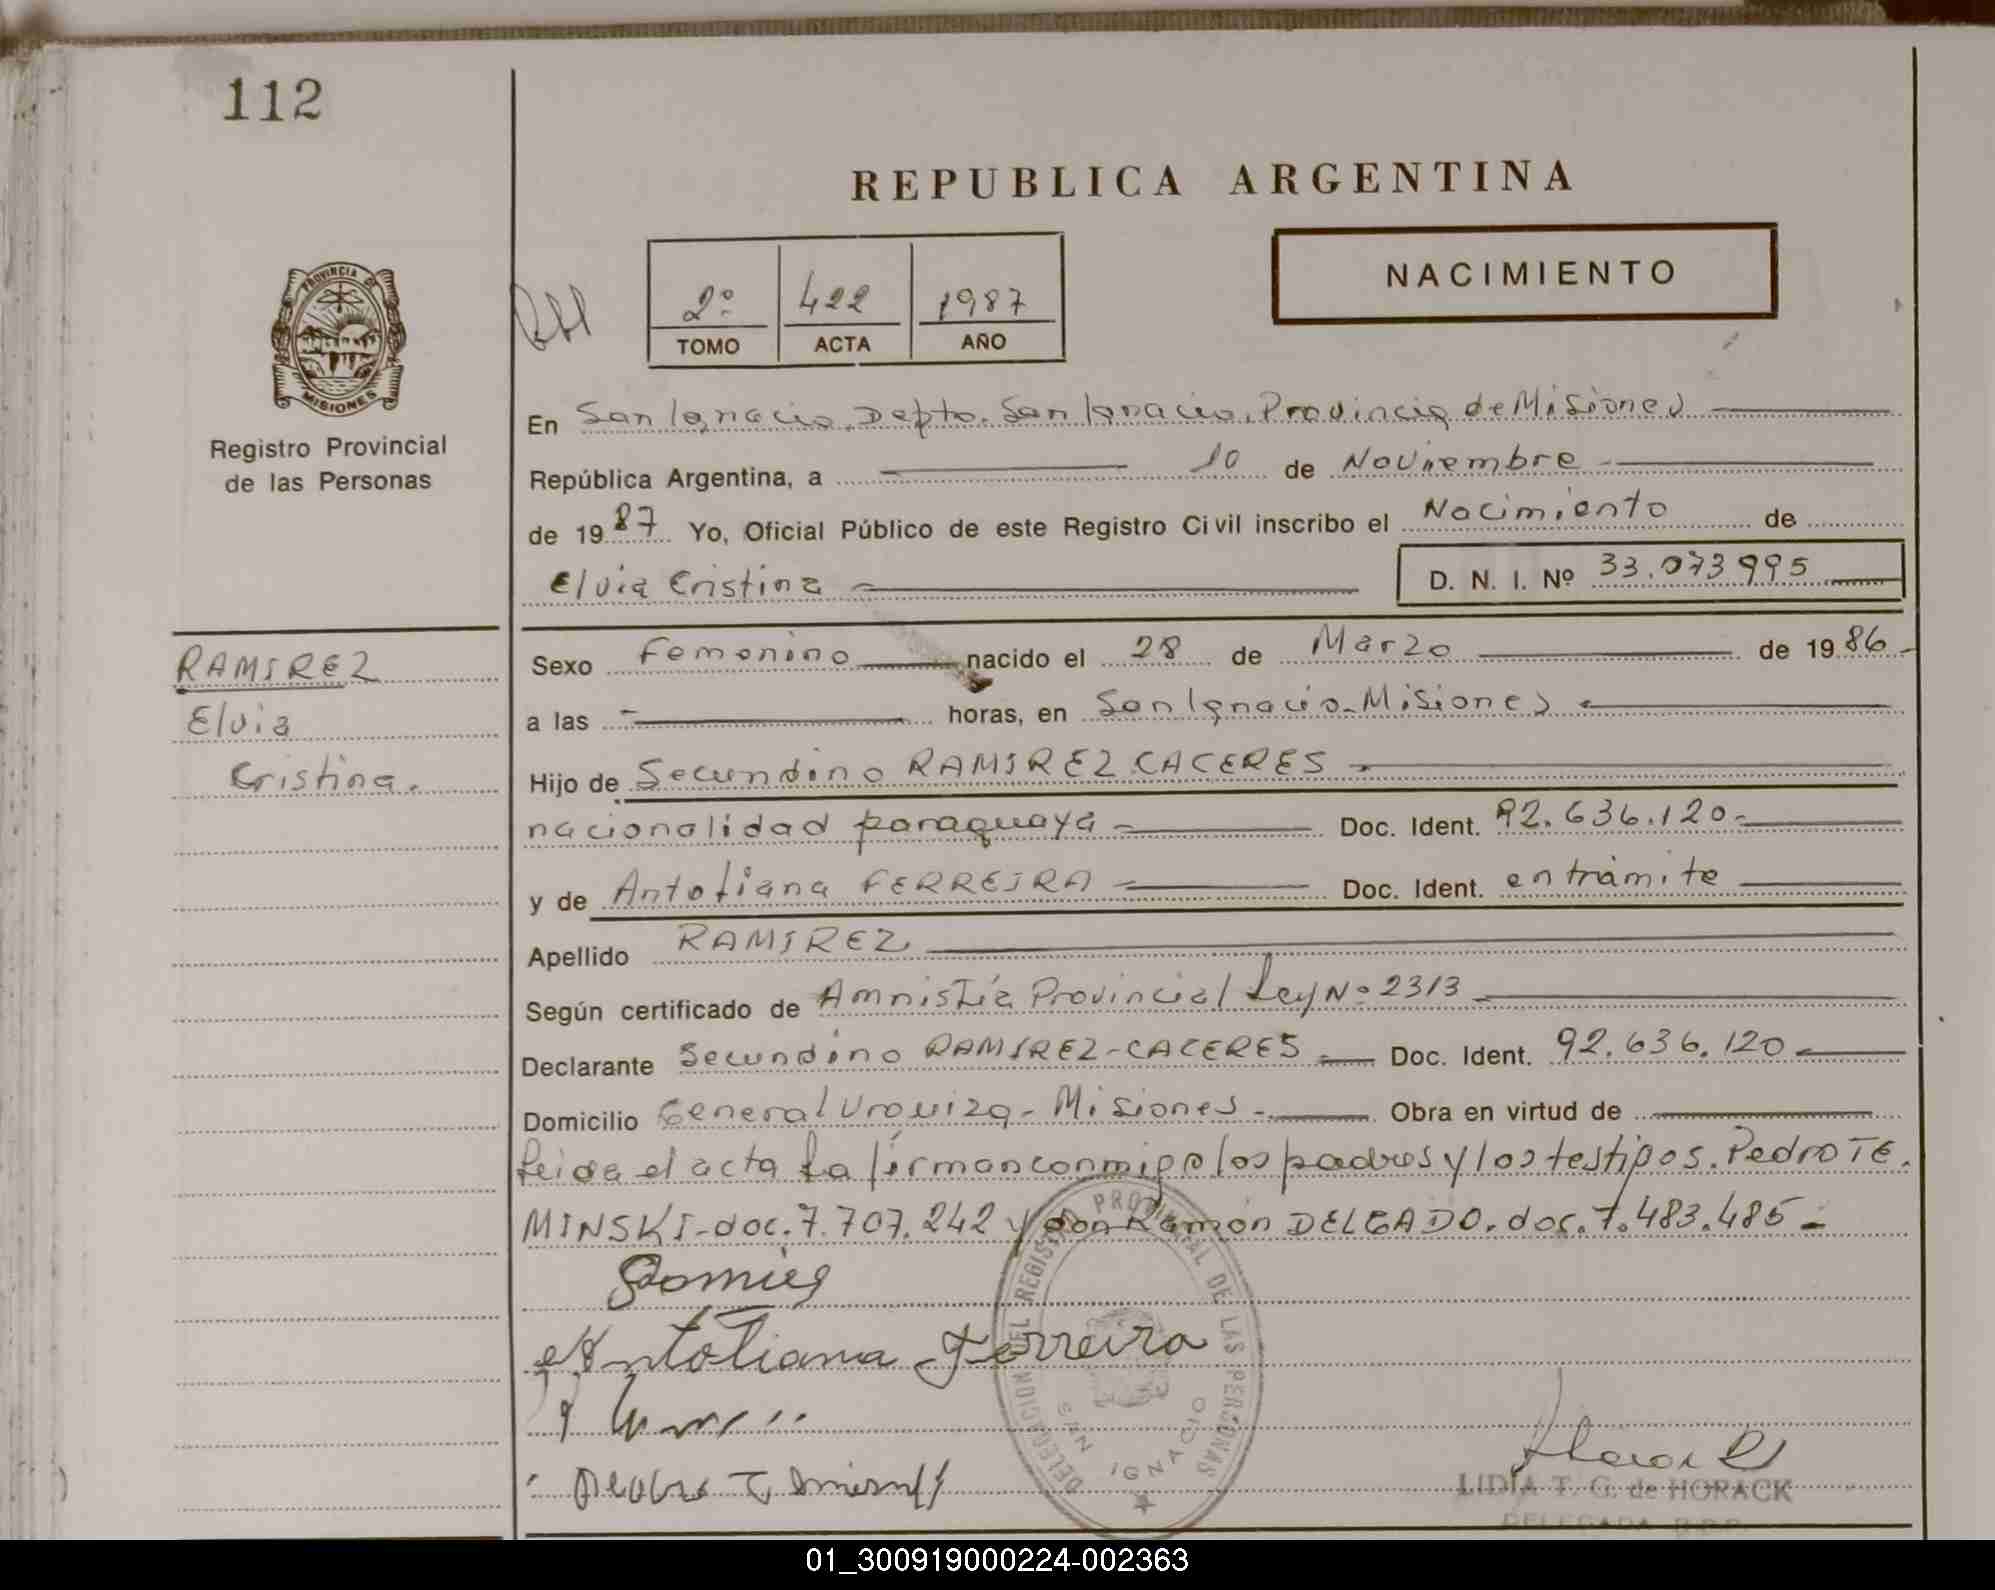 112
REPUBLICA ARGENTINA
NACIMIENTO
2º 422 1987
TOMO ACTA AÑO
PROVINCIA DE MISIONES
Registro Provincial
de las Personas
En San Ignacio, Depto. San Ignacio, Provincia de Misiones
República Argentina, a 10 de Noviembre
de 1987 Yo, Oficial Público de este Registro Civil inscribo el Nacimiento de
Elvia Cristina D. N. I. Nº 33.073995
RAMIREZ
Elvia
Cristina.
Sexo Femenino nacido el 28 de Marzo de 1986
a las horas, en San Ignacio-Misiones
Hijo de Secundino RAMIREZ CACERES
nacionalidad paraguaya Doc. Ident. 92.636.120
y de Antoliana FERREIRA Doc. Ident. en trámite
Apellido RAMIREZ
Según certificado de Amnistía Provincial Ley Nº 2313
Declarante Secundino RAMIREZ-CACERES Doc. Ident. 92.636.120
Domicilio General Urquiza - Misiones Obra en virtud de
Leida el acta la firman conmigo los padres y los testigos. Pedro TE.
MINSKI-doc. 7.707.242 y don Ramón DELGADO. doc. 7.483.485
Antoliana Ferreira
DELEGACION DEL REGISTRO PROVINCIAL DE LAS PERSONAS
SAN IGNACIO
LIDIA T. G. de HORACK
DELEGADA R.P.P.
01_300919000224-002363